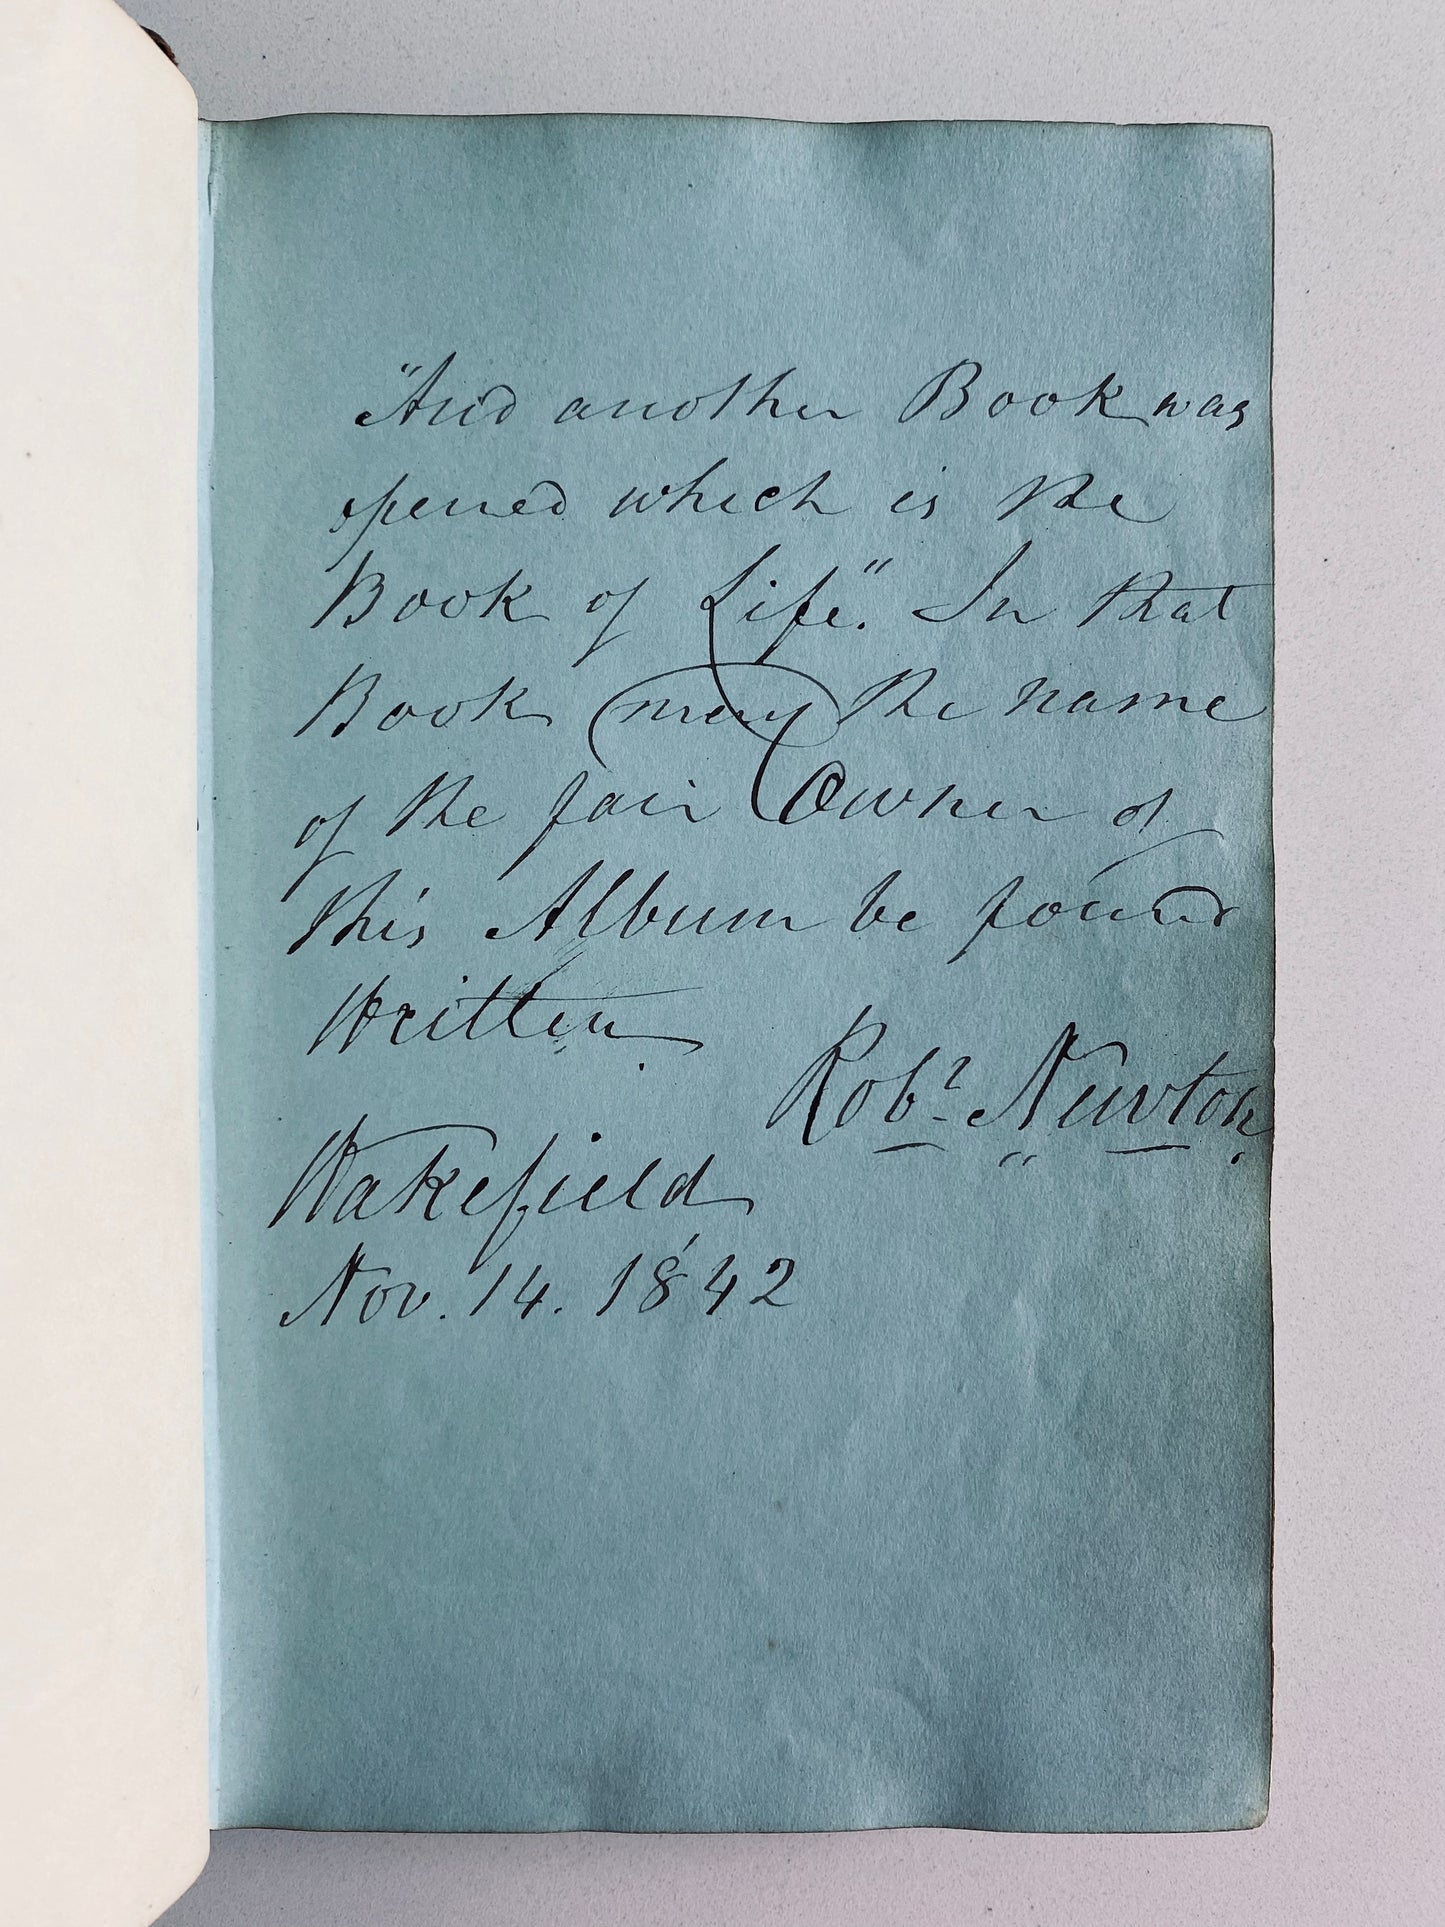 "And another Book was
opened which is the
Book of Life." In that
Book may the name
of the fair Owner of
this Album be found
Written.
Robt. Newton
Wakefield
Nov. 14. 1842